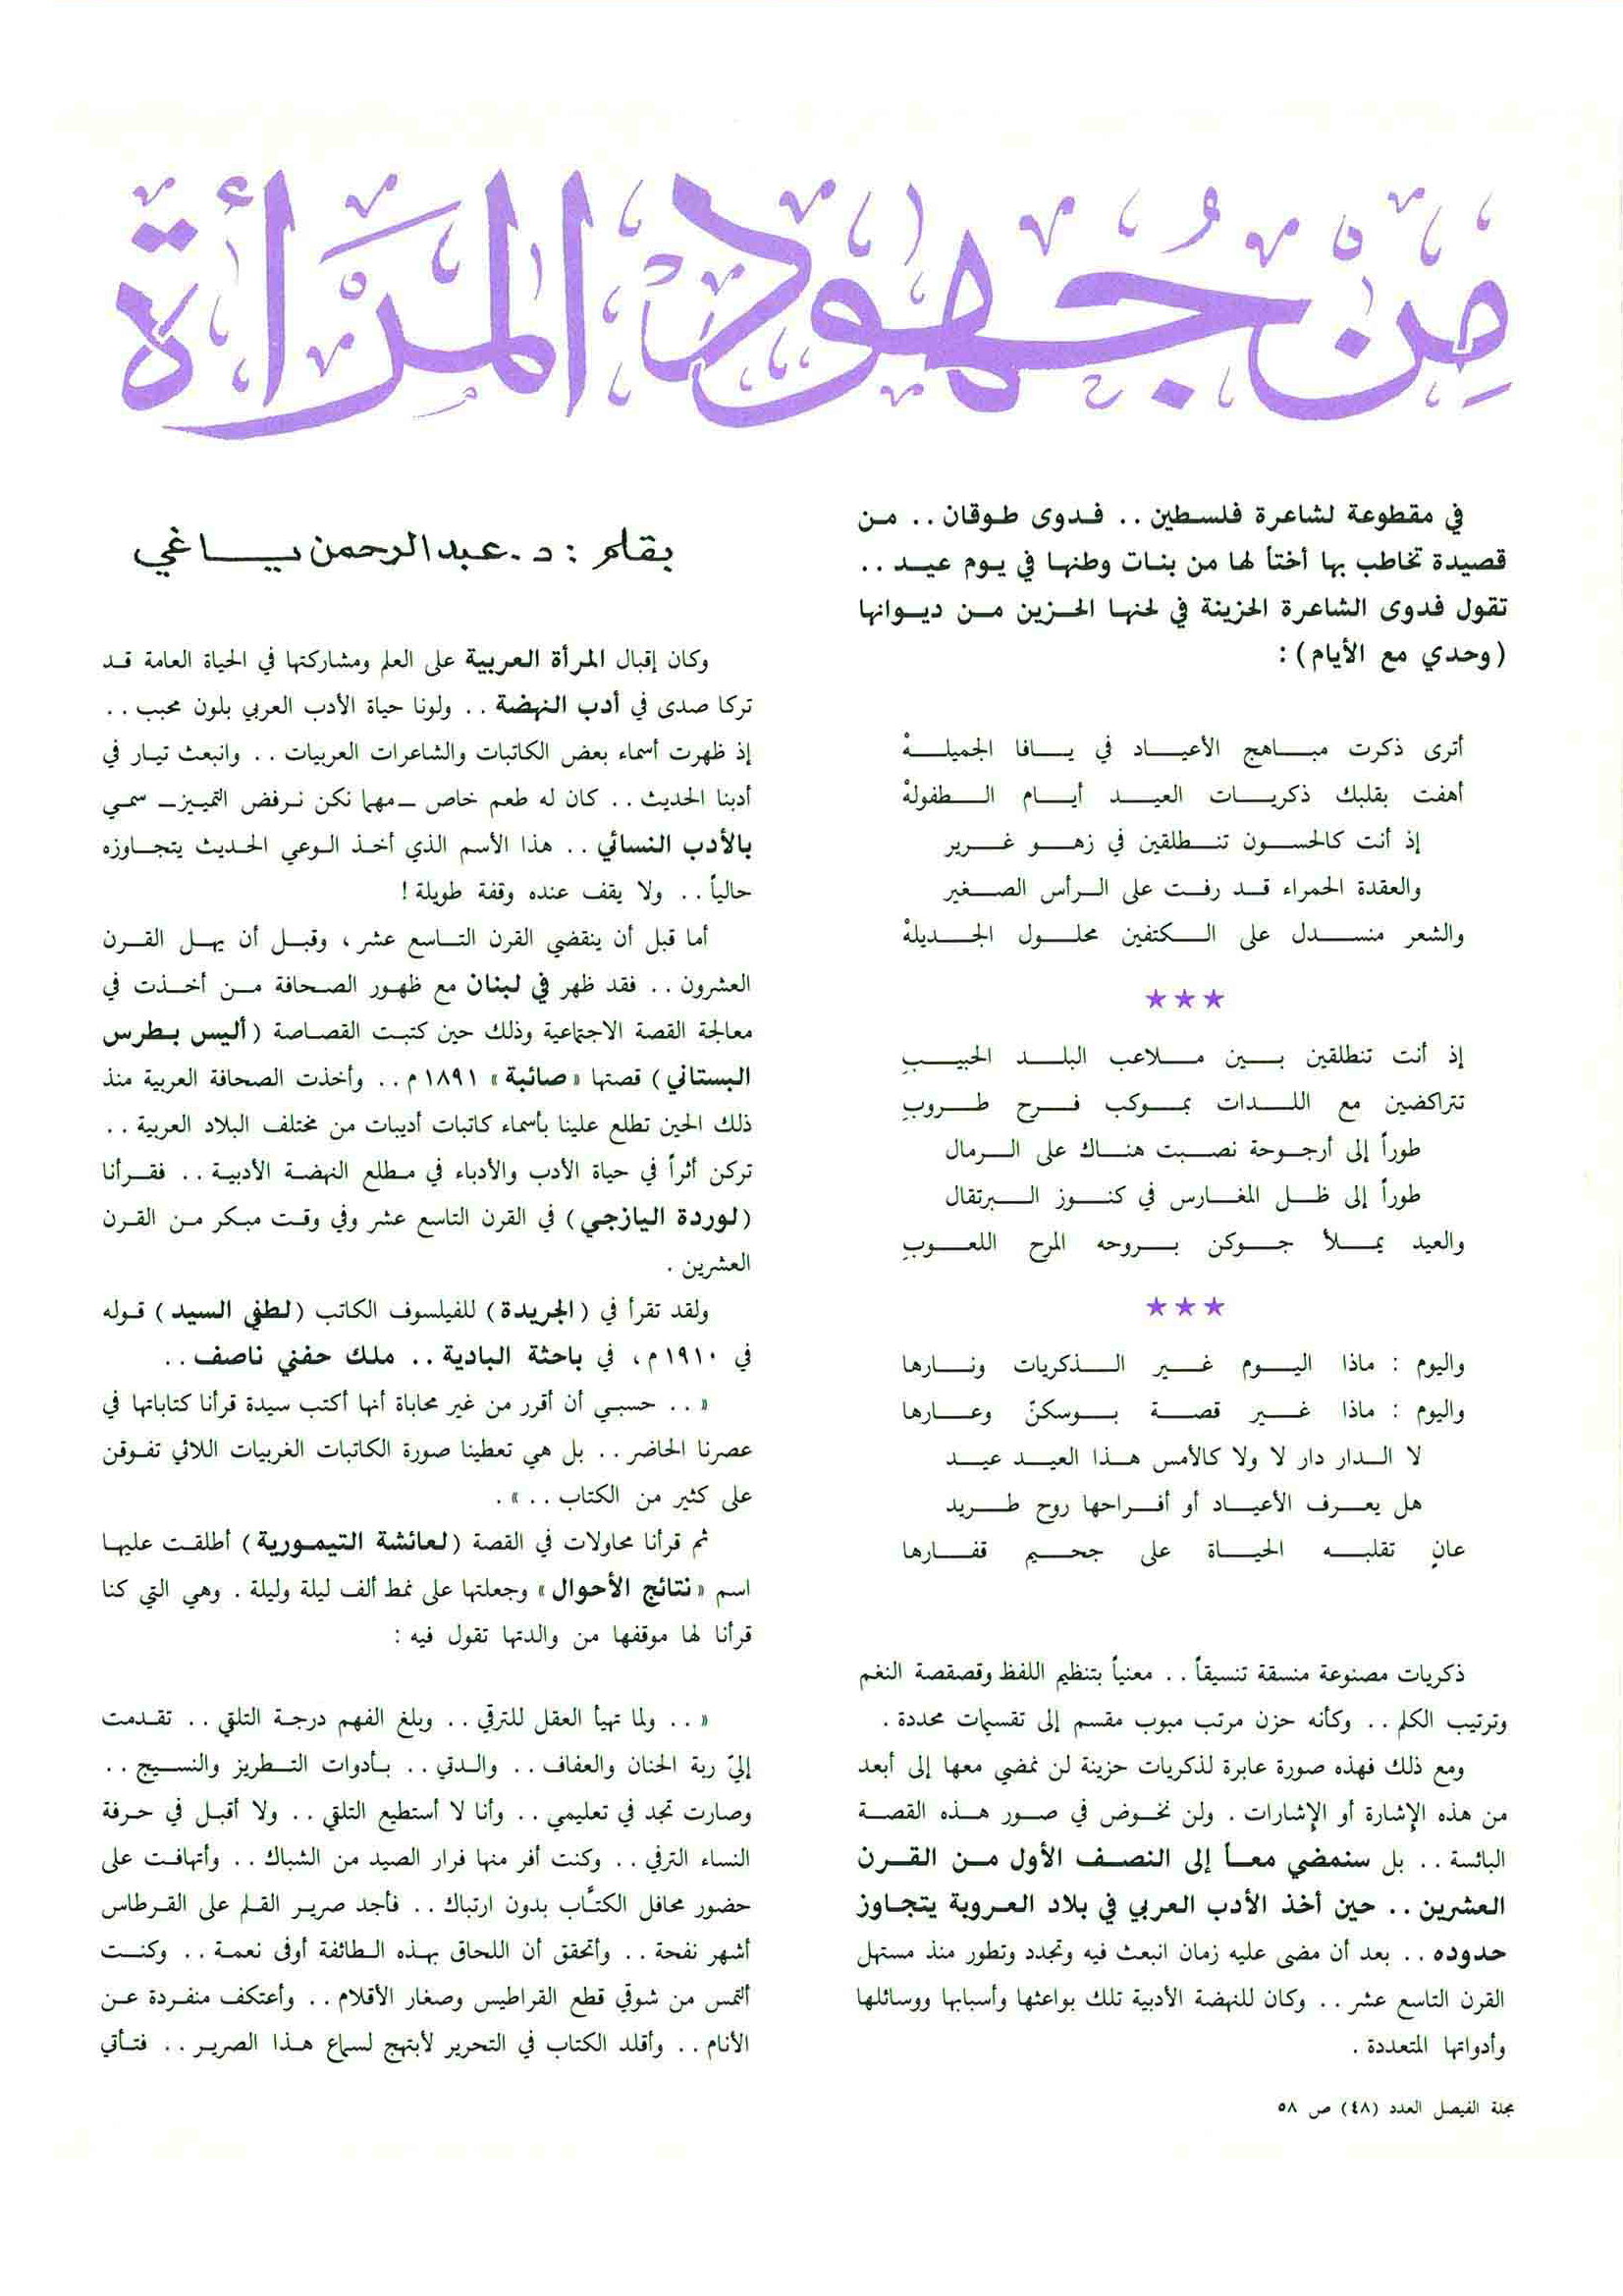 من جهود المرأة
في مقطوعة لشاعرة فلسطين .. فدوى طوقان .. من
قصيدة تخاطب بها أختاً لها من بنات وطنها في يوم عيد ..
تقول فدوى الشاعرة الحزينة في لحنها الحزين من ديوانها
(وحدي مع الأيام) :
أترى ذكرت مباهج الأعياد في يافا الجميلهْ
أهفت بقلبك ذكريات العيد أيام الطفولهْ
إذ أنت كالحسون تنطلقين في زهو غرير
والعقدة الحمراء قد رفت على الرأس الصغير
والشعر منسدل على الكتفين محلول الجديلهْ
★★★
إذ أنت تنطلقين بين ملاعب البلد الحبيبِ
تتراكضين مع اللدات بموكب فرح طروبِ
طوراً إلى أرجوحة نصبت هناك على الرمال
طوراً إلى ظل المغارس في كنوز البرتقال
والعيد يملأ جوكن بروحه المرح اللعوبِ
★★★
واليوم : ماذا اليوم غير الذكريات ونارها
واليوم : ماذا غير قصة بوسكنّ وعارها
لا الدار دار لا ولا كالأمس هذا العيد عيد
هل يعرف الأعياد أو أفراحها روح طريد
عانٍ تقلبه الحياة على جحيم قفارها
ذكريات مصنوعة منسقة تنسيقاً .. معنياً بتنظيم اللفظ وقصقصة النغم
وترتيب الكلم .. وكأنه حزن مرتب مبوب مقسم إلى تقسيمات محددة .
ومع ذلك فهذه صورة عابرة لذكريات حزينة لن نمضي معها إلى أبعد
من هذه الإشارة أو الإشارات . ولن نخوض في صور هذه القصة
البائسة .. بل سنمضي معاً إلى النصف الأول من القرن
العشرين .. حين أخذ الأدب العربي في بلاد العروبة يتجاوز
حدوده .. بعد أن مضى عليه زمان انبعث فيه وتجدد وتطور منذ مستهل
القرن التاسع عشر .. وكان للنهضة الأدبية تلك بواعثها وأسبابها ووسائلها
وأدواتها المتعددة .
بقلم : د. عبدالرحمن ياغي
وكان إقبال المرأة العربية على العلم ومشاركتها في الحياة العامة قد
تركا صدى في أدب النهضة .. ولونا حياة الأدب العربي بلون محبب ..
إذ ظهرت أسماء بعض الكاتبات والشاعرات العربيات .. وانبعث تيار في
أدبنا الحديث .. كان له طعم خاص ــ مهما نكن نرفض التمييز ــ سمي
بالأدب النسائي .. هذا الأسم الذي أخذ الوعي الحديث يتجاوزه
حالياً .. ولا يقف عنده وقفة طويلة !
أما قبل أن ينقضي القرن التاسع عشر ، وقبل أن يهل القرن
العشرون .. فقد ظهر في لبنان مع ظهور الصحافة من أخذت في
معالجة القصة الاجتماعية وذلك حين كتبت القصاصة (أليس بطرس
البستاني) قصتها «صائبة» ١٨٩١ م .. وأخذت الصحافة العربية منذ
ذلك الحين تطلع علينا بأسماء كاتبات أديبات من مختلف البلاد العربية ..
تركن أثراً في حياة الأدب والأدباء في مطلع النهضة الأدبية .. فقرأنا
(لوردة اليازجي) في القرن التاسع عشر وفي وقت مبكر من القرن
العشرين .
ولقد تقرأ في (الجريدة) للفيلسوف الكاتب (لطفي السيد) قوله
في ١٩١٠ م، في باحثة البادية .. ملك حفني ناصف ..
« .. حسبي أن أقرر من غير محاباة أنها أكتب سيدة قرأنا كتاباتها في
عصرنا الحاضر .. بل هي تعطينا صورة الكاتبات الغربيات اللائي تفوقن
على كثير من الكتاب .. » .
ثم قرأنا محاولات في القصة (لعائشة التيمورية) أطلقت عليها
اسم «نتائج الأحوال» وجعلتها على نمط ألف ليلة وليلة . وهي التي كنا
قرأنا لها موقفها من والدتها تقول فيه :
« .. ولما تهيأ العقل للترقي .. وبلغ الفهم درجة التلقي .. تقدمت
إليّ ربة الحنان والعفاف .. والدتي .. بأدوات التطريز والنسيج ..
وصارت تجد في تعليمي .. وأنا لا أستطيع التلقي .. ولا أقبل في حرفة
النساء الترقي .. وكنت أفر منها فرار الصيد من الشباك .. وأتهافت على
حضور محافل الكتَّاب بدون ارتباك .. فأجد صرير القلم على القرطاس
أشهر نفحة .. وأتحقق أن اللحاق بهذه الطائفة أوفى نعمة .. وكنت
ألتمس من شوقي قطع القراطيس وصغار الأقلام .. وأعتكف منفردة عن
الأنام .. وأقلد الكتاب في التحرير لأبتهج لسماع هذا الصرير .. فتأتي
مجلة الفيصل العدد (٤٨) ص ٥٨